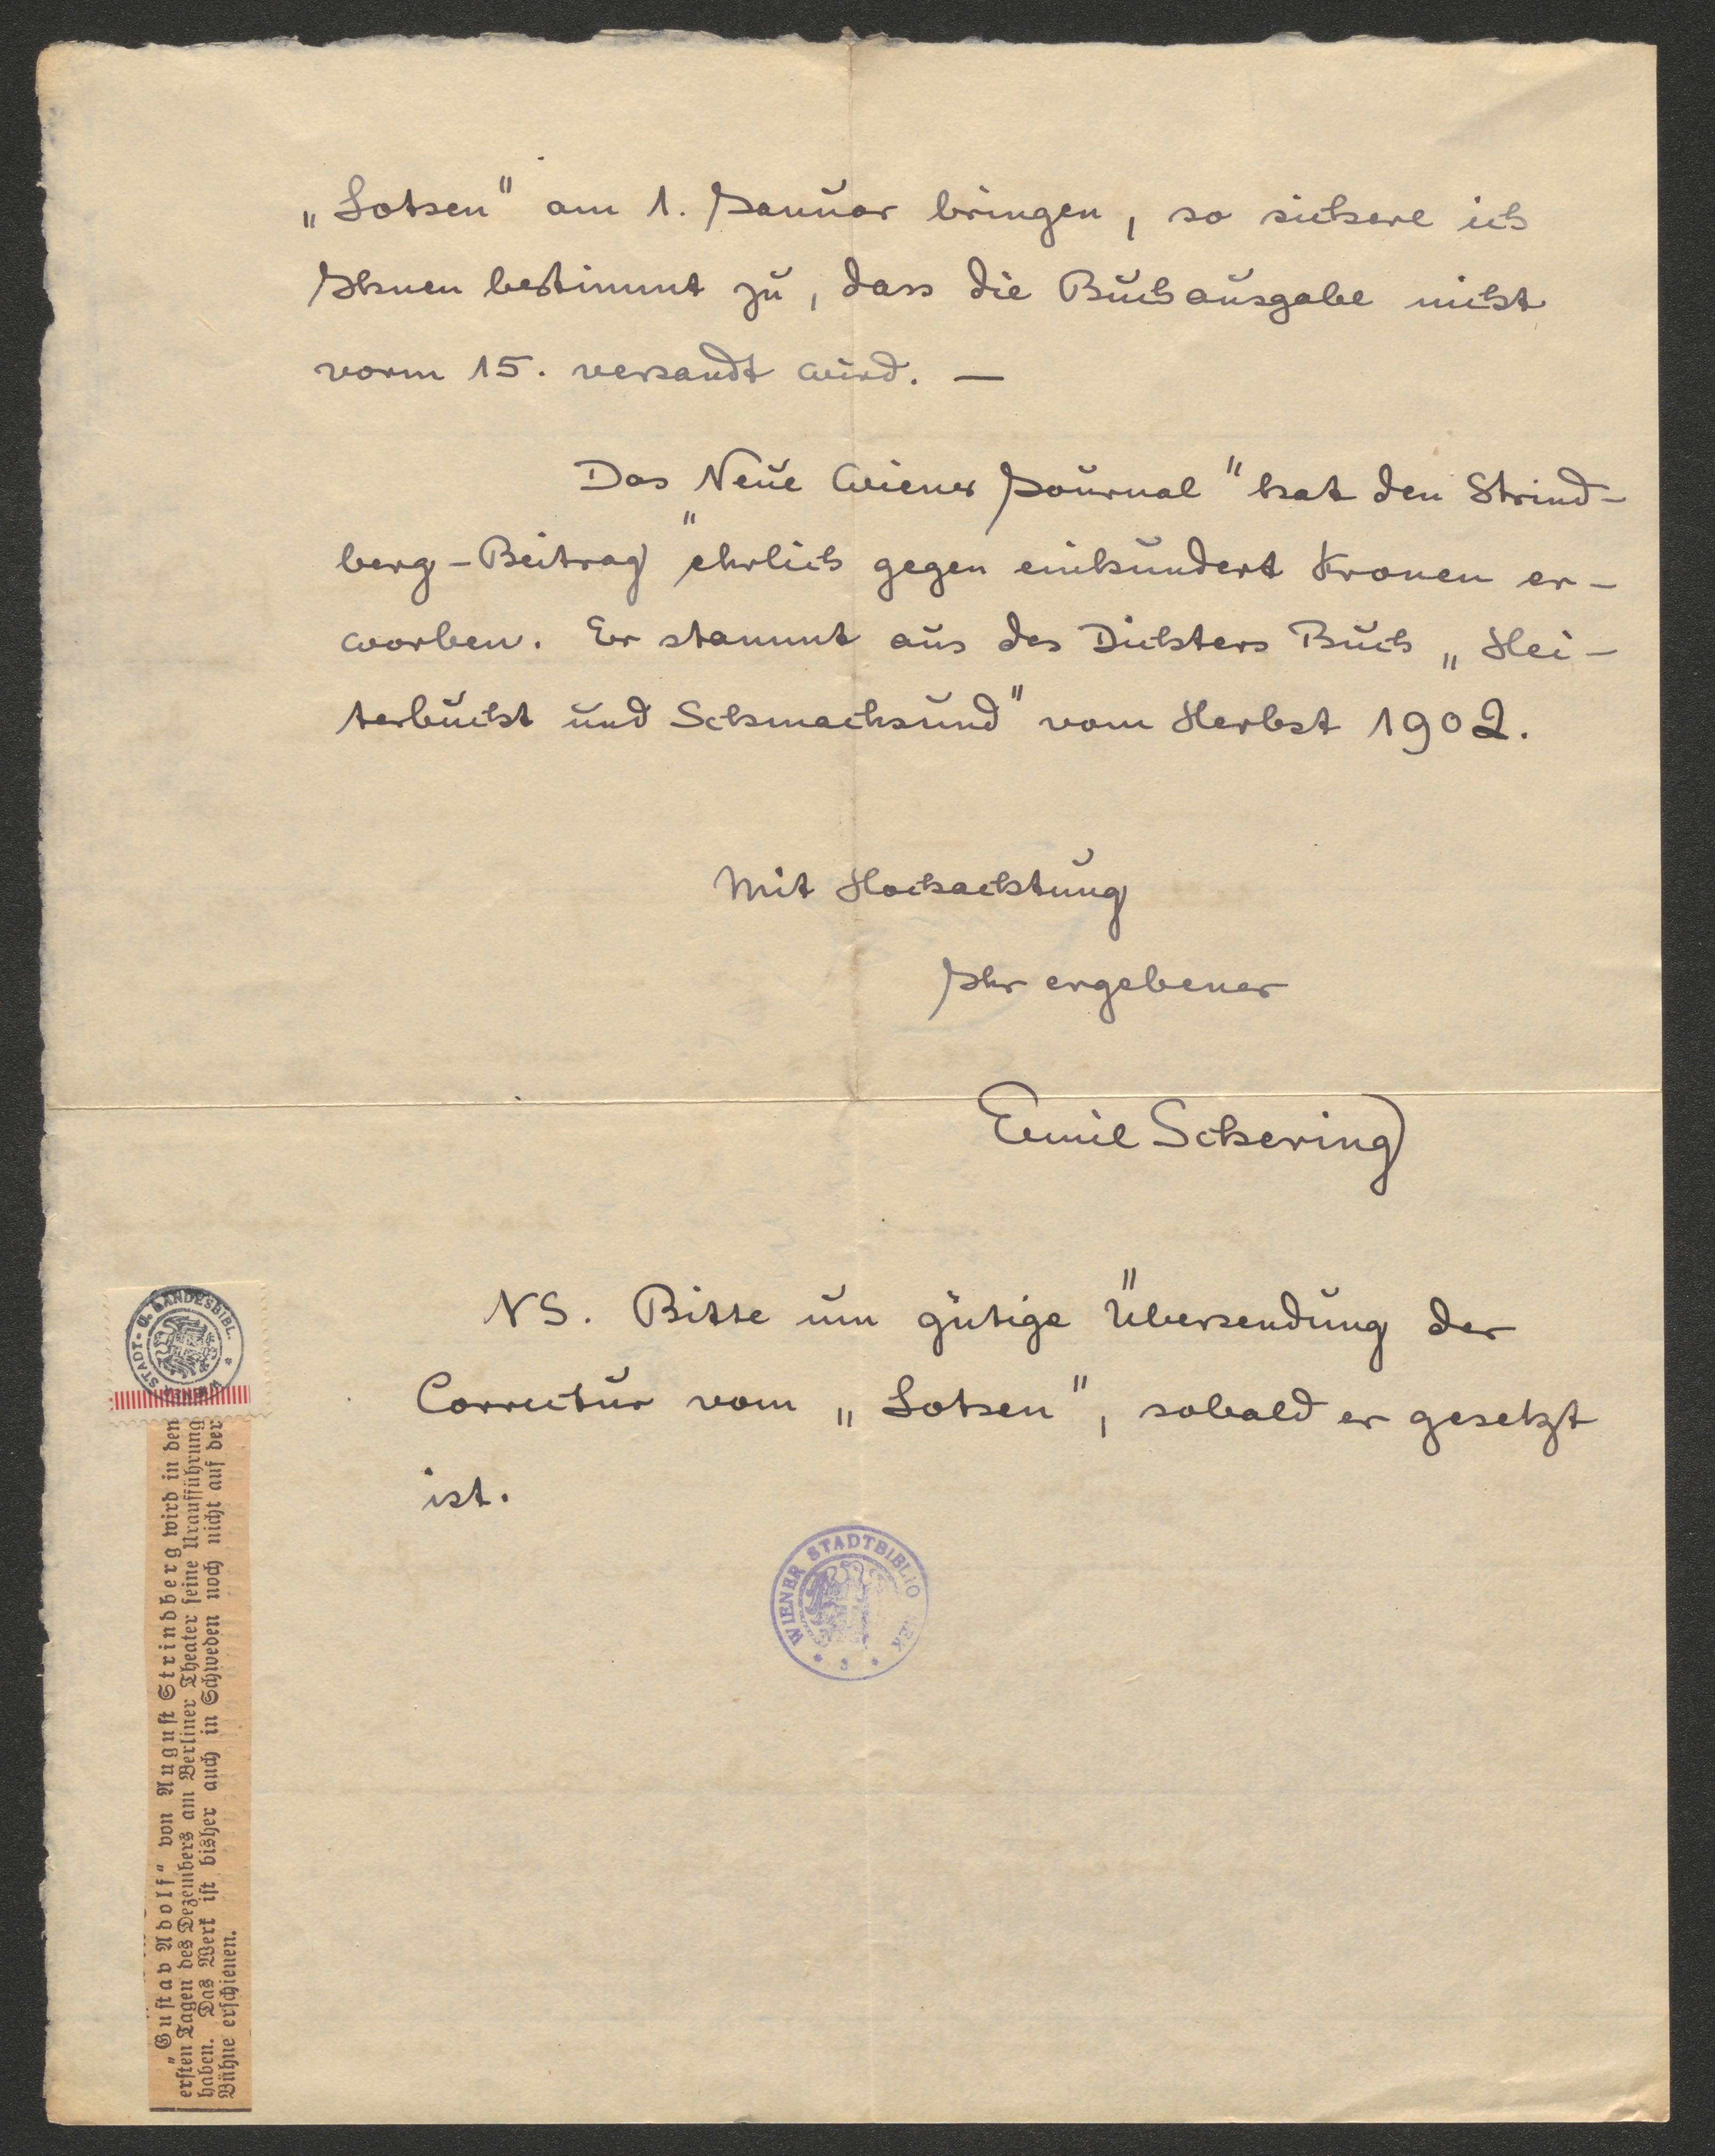 „Lotsen" am 1. Januar bringen, so sichere ich
Ihnen bestimmt zu, dass die Buchausgabe nicht
vorm 15. versandt wird. —
Das „Neue Wiener Journal" hat den Strind-
berg-Beitrag ehrlich gegen einhundert Kronen er-
worben. Er stammt aus des Dichters Buch „Hei-
terbucht und Schmachsund" vom Herbst 1902.
Mit Hochachtung
Ihr ergebener
Emil Schering
NS. Bitte um gütige Übersendung der
Correctur vom „Lotsen", sobald er gesetzt
ist.
WIENER STADT- U. LANDESBIBL.
„Gustav Adolf" von August Strindberg wird in den
ersten Tagen des Dezembers am Berliner Theater seine Uraufführung
haben. Das Werk ist bisher auch in Schweden noch nicht auf der
Bühne erschienen.
WIENER STADTBIBLIOTHEK